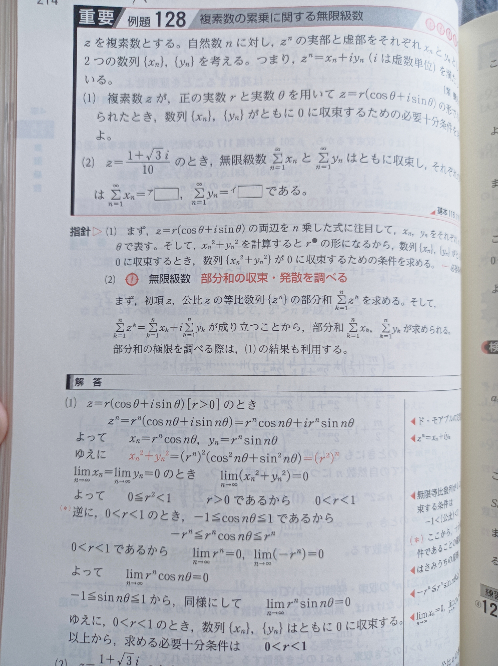 214
重要 例題 128 複素数の累乗に関する無限級数
zを複素数とする。自然数nに対し，zⁿの実部と虚部をそれぞれxₙとyₙと
2つの数列{xₙ}，{yₙ}を考える。つまり，zⁿ=xₙ+iyₙ (iは虚数単位)を
いる。
(1) 複素数zが，正の実数rと実数θを用いてz=r(cosθ+isinθ)の
られたとき，数列{xₙ}，{yₙ}がともに0に収束するための必要十分条件を
よ。
(2) z=(1+√3 i)/10 のとき，無限級数 ∑[n=1,∞]xₙ と ∑[n=1,∞]yₙ はともに収束し，それぞれ
は ∑[n=1,∞]xₙ=ア□，∑[n=1,∞]yₙ=イ□ である。
指針 ▷ (1) まず，z=r(cosθ+isinθ)の両辺をn乗した式に注目して，xₙ，yₙをそれぞれ
θで表す。そして，xₙ²+yₙ²を計算するとr●の形になるから，数列{xₙ}，{yₙ}が
0に収束するとき，数列{xₙ²+yₙ²}が0に収束するための条件を求める。
(2) 無限級数 部分和の収束・発散を調べる
まず，初項z，公比zの等比数列{zⁿ}の部分和 ∑[k=1,n]zᵏ を求める。そして，
∑[k=1,n]zᵏ=∑[k=1,n]xₖ+i∑[k=1,n]yₖ が成り立つことから，部分和 ∑[k=1,n]xₖ，∑[k=1,n]yₖ が求められる。
部分和の極限を調べる際は，(1)の結果も利用する。
解答
(1) z=r(cosθ+isinθ) [r>0] のとき
zⁿ=rⁿ(cosnθ+isinnθ)=rⁿcosnθ+irⁿsinnθ
よって xₙ=rⁿcosnθ，yₙ=rⁿsinnθ
ゆえに xₙ²+yₙ²=(rⁿ)²(cos²nθ+sin²nθ)=(r²)ⁿ
lim[n→∞]xₙ=lim[n→∞]yₙ=0のとき lim[n→∞](xₙ²+yₙ²)=0
よって 0≦r²<1 r>0であるから 0<r<1
逆に，0<r<1のとき，−1≦cosnθ≦1であるから
−rⁿ≦rⁿcosnθ≦rⁿ
0<r<1であるから lim[n→∞]rⁿ=0，lim[n→∞](−rⁿ)=0
よって lim[n→∞]rⁿcosnθ=0
−1≦sinnθ≦1から，同様にして lim[n→∞]rⁿsinnθ=0
ゆえに，0<r<1のとき，数列{xₙ}，{yₙ}はともに0に収束する。
以上から，求める必要十分条件は 0<r<1
1+√3 i
◀ド・モアブルの
◀zⁿ=xₙ+iyₙ
◀無限等比
束する条件は
ここから，
件であることの
◀はさみうちの